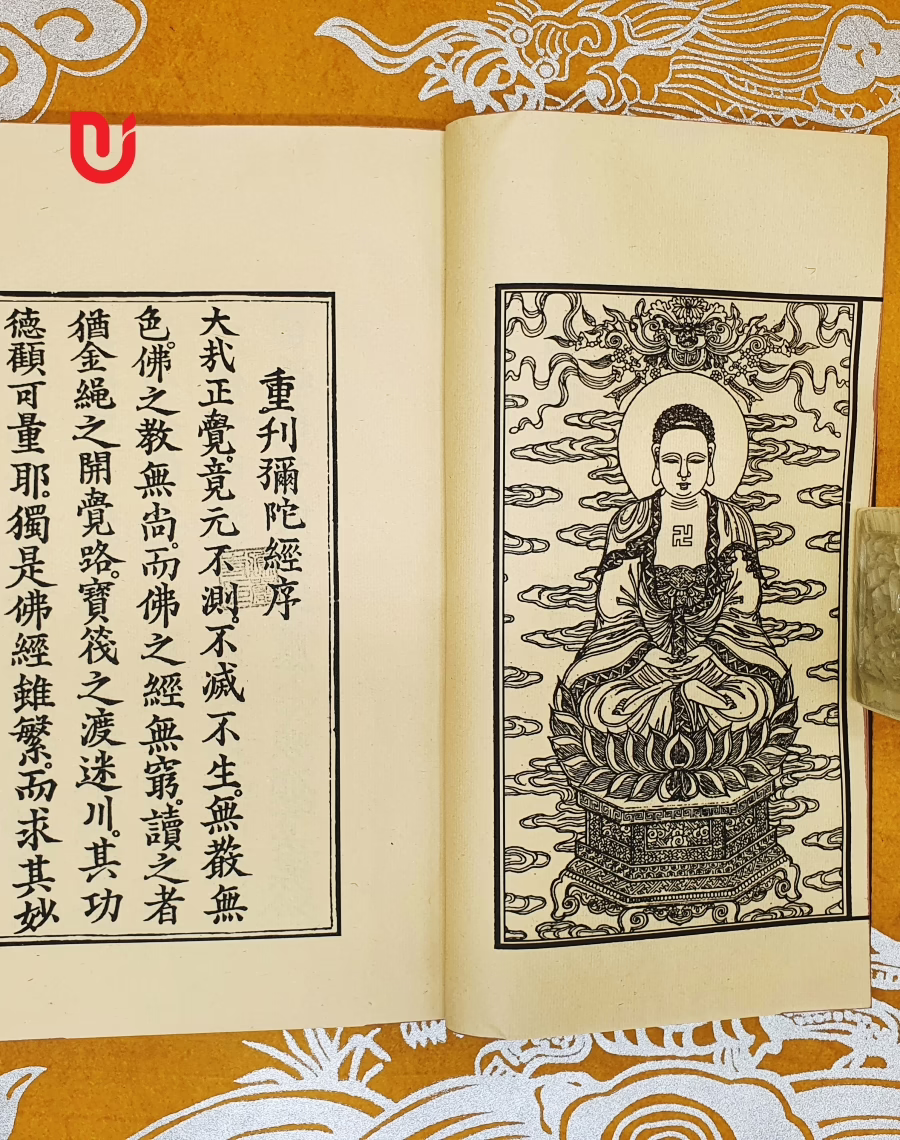 重刊彌陀經序
大哉正覺。竟元不測。不滅不生。無薮無
色。佛之教無尚。而佛之經無窮。讀之者
猶金繩之開覺路。寶筏之渡迷川。其功
德顧可量耶。獨是佛經雖繁。而求其妙